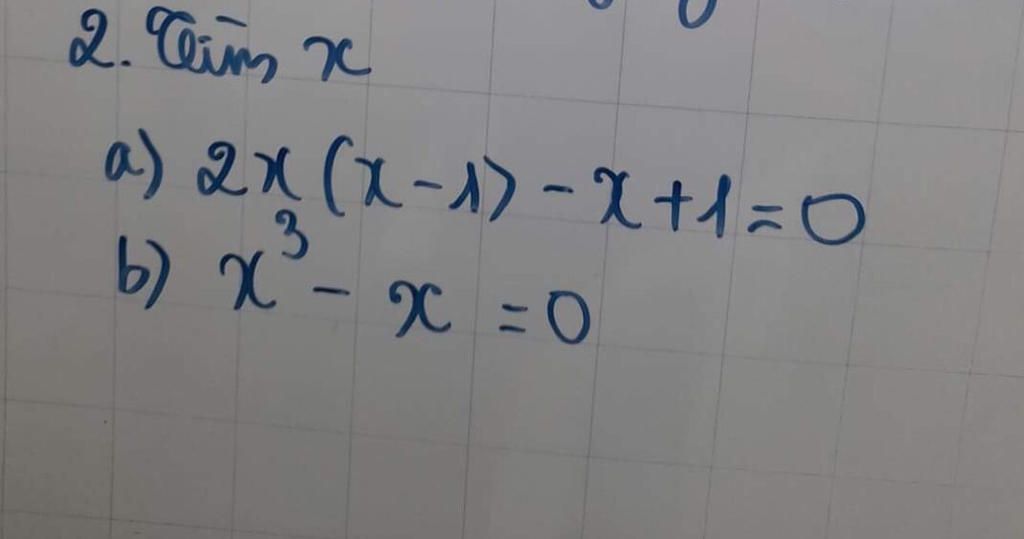 2. Tìm x
a) 2x(x-1)-x+1=0
b) x³ - x = 0